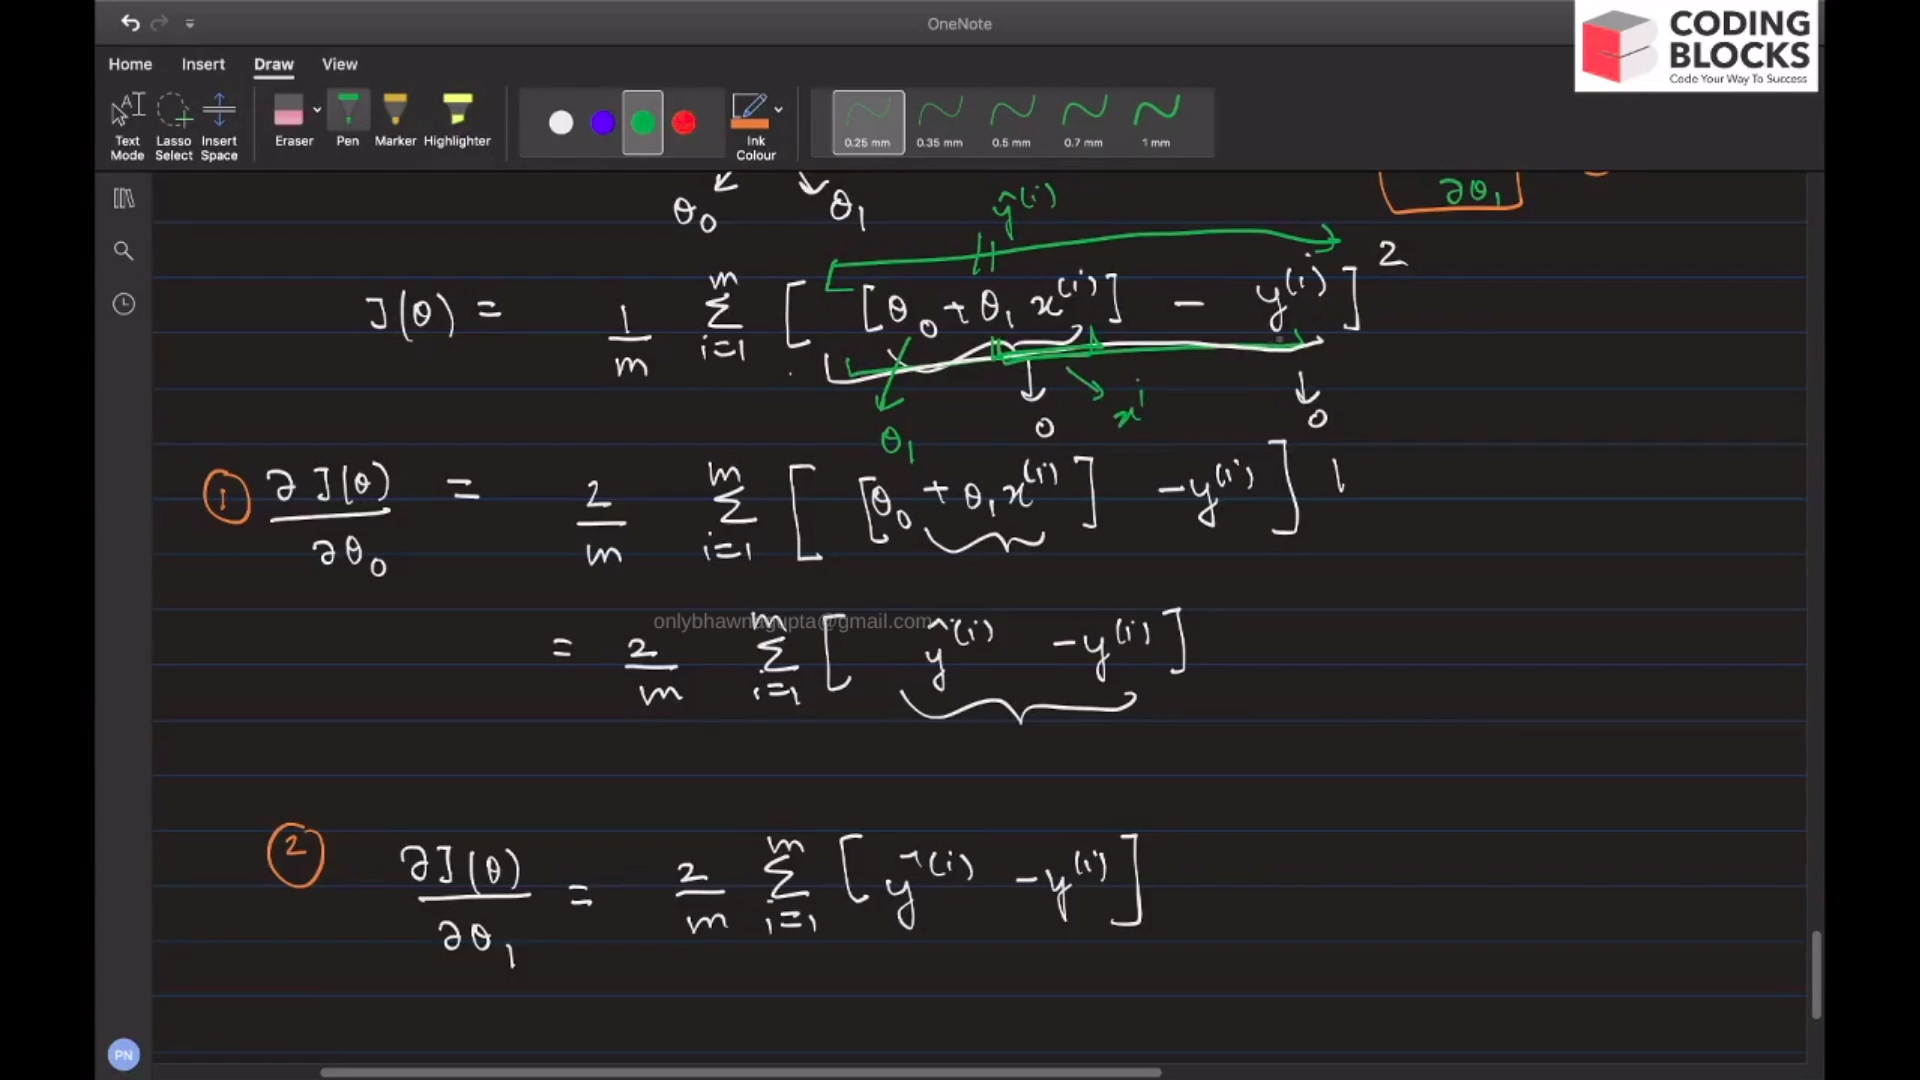 OneNote
CODING BLOCKS
Code Your Way To Success
Home Insert Draw View
Text Mode Lasso Select Insert Space Eraser Pen Marker Highlighter Ink Colour 0.25 mm 0.35 mm 0.5 mm 0.7 mm 1 mm
θ₀ θ₁ ŷ⁽ⁱ⁾ ∂θ₁
J(θ) = 1/m Σᵢ₌₁ᵐ [ [θ₀ + θ₁ x⁽ⁱ⁾] − y⁽ⁱ⁾ ]²
θ₁ 0 xⁱ 0
① ∂J(θ)/∂θ₀ = 2/m Σᵢ₌₁ᵐ [ [θ₀ + θ₁x⁽ⁱ⁾] −y⁽ⁱ⁾ ] 1
onlybhawnagupta@gmail.com
= 2/m Σᵢ₌₁ᵐ [ ŷ⁽ⁱ⁾ −y⁽ⁱ⁾ ]
② ∂J(θ)/∂θ₁ = 2/m Σᵢ₌₁ᵐ [ ŷ⁽ⁱ⁾ −y⁽ⁱ⁾ ]
PN